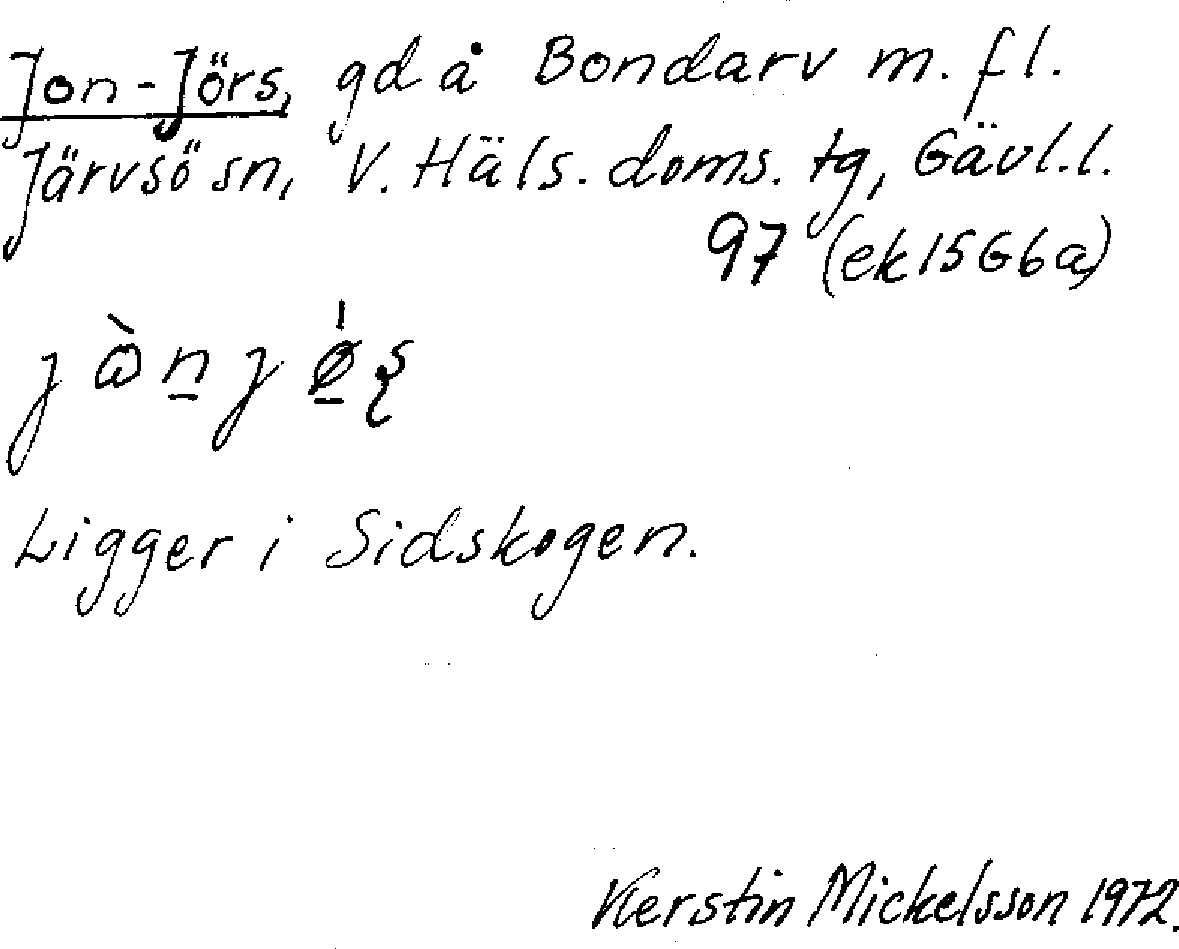 Jon-Jörs, gd å Bondarv m. fl.
Järvsö sn, V. Häls. doms. tg, Gävl. l.
97 (ek 15G6a)
Ligger i Sidskogen.
Kerstin Mickelsson 1972.